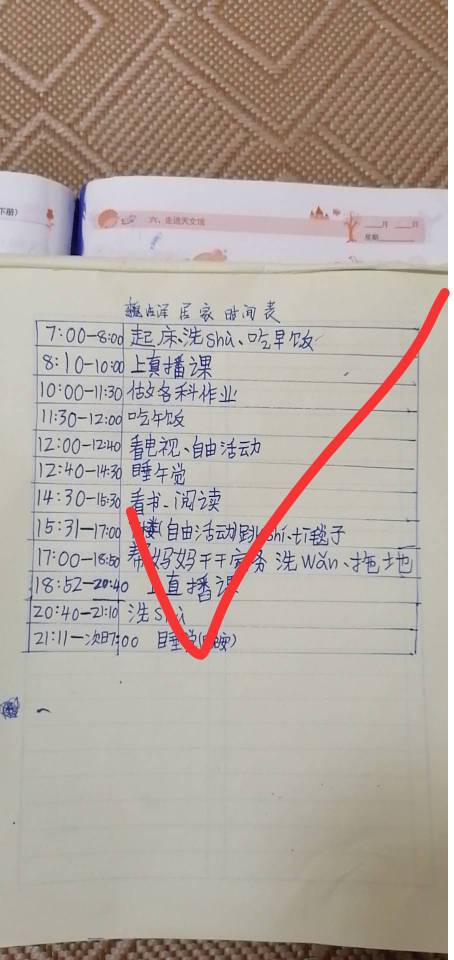 下册)
六、走进天文馆
月 日
星期
居家时间表
7:00-8:00 起床、洗shù、吃早饭
8:10-10:00 上真播课
10:00-11:30 做各科作业
11:30-12:00 吃午饭
12:00-12:40 看电视、自由活动
12:40-14:30 睡午觉
14:30-15:30 看书、阅读
15:31-17:00 楼(自由活动)跑 shí、打毽子
17:00-18:50 帮妈妈干家务 洗wǎn、拖地
18:52-20:40 上直播课
20:40-21:10 洗shù
21:11-次日7:00 睡觉